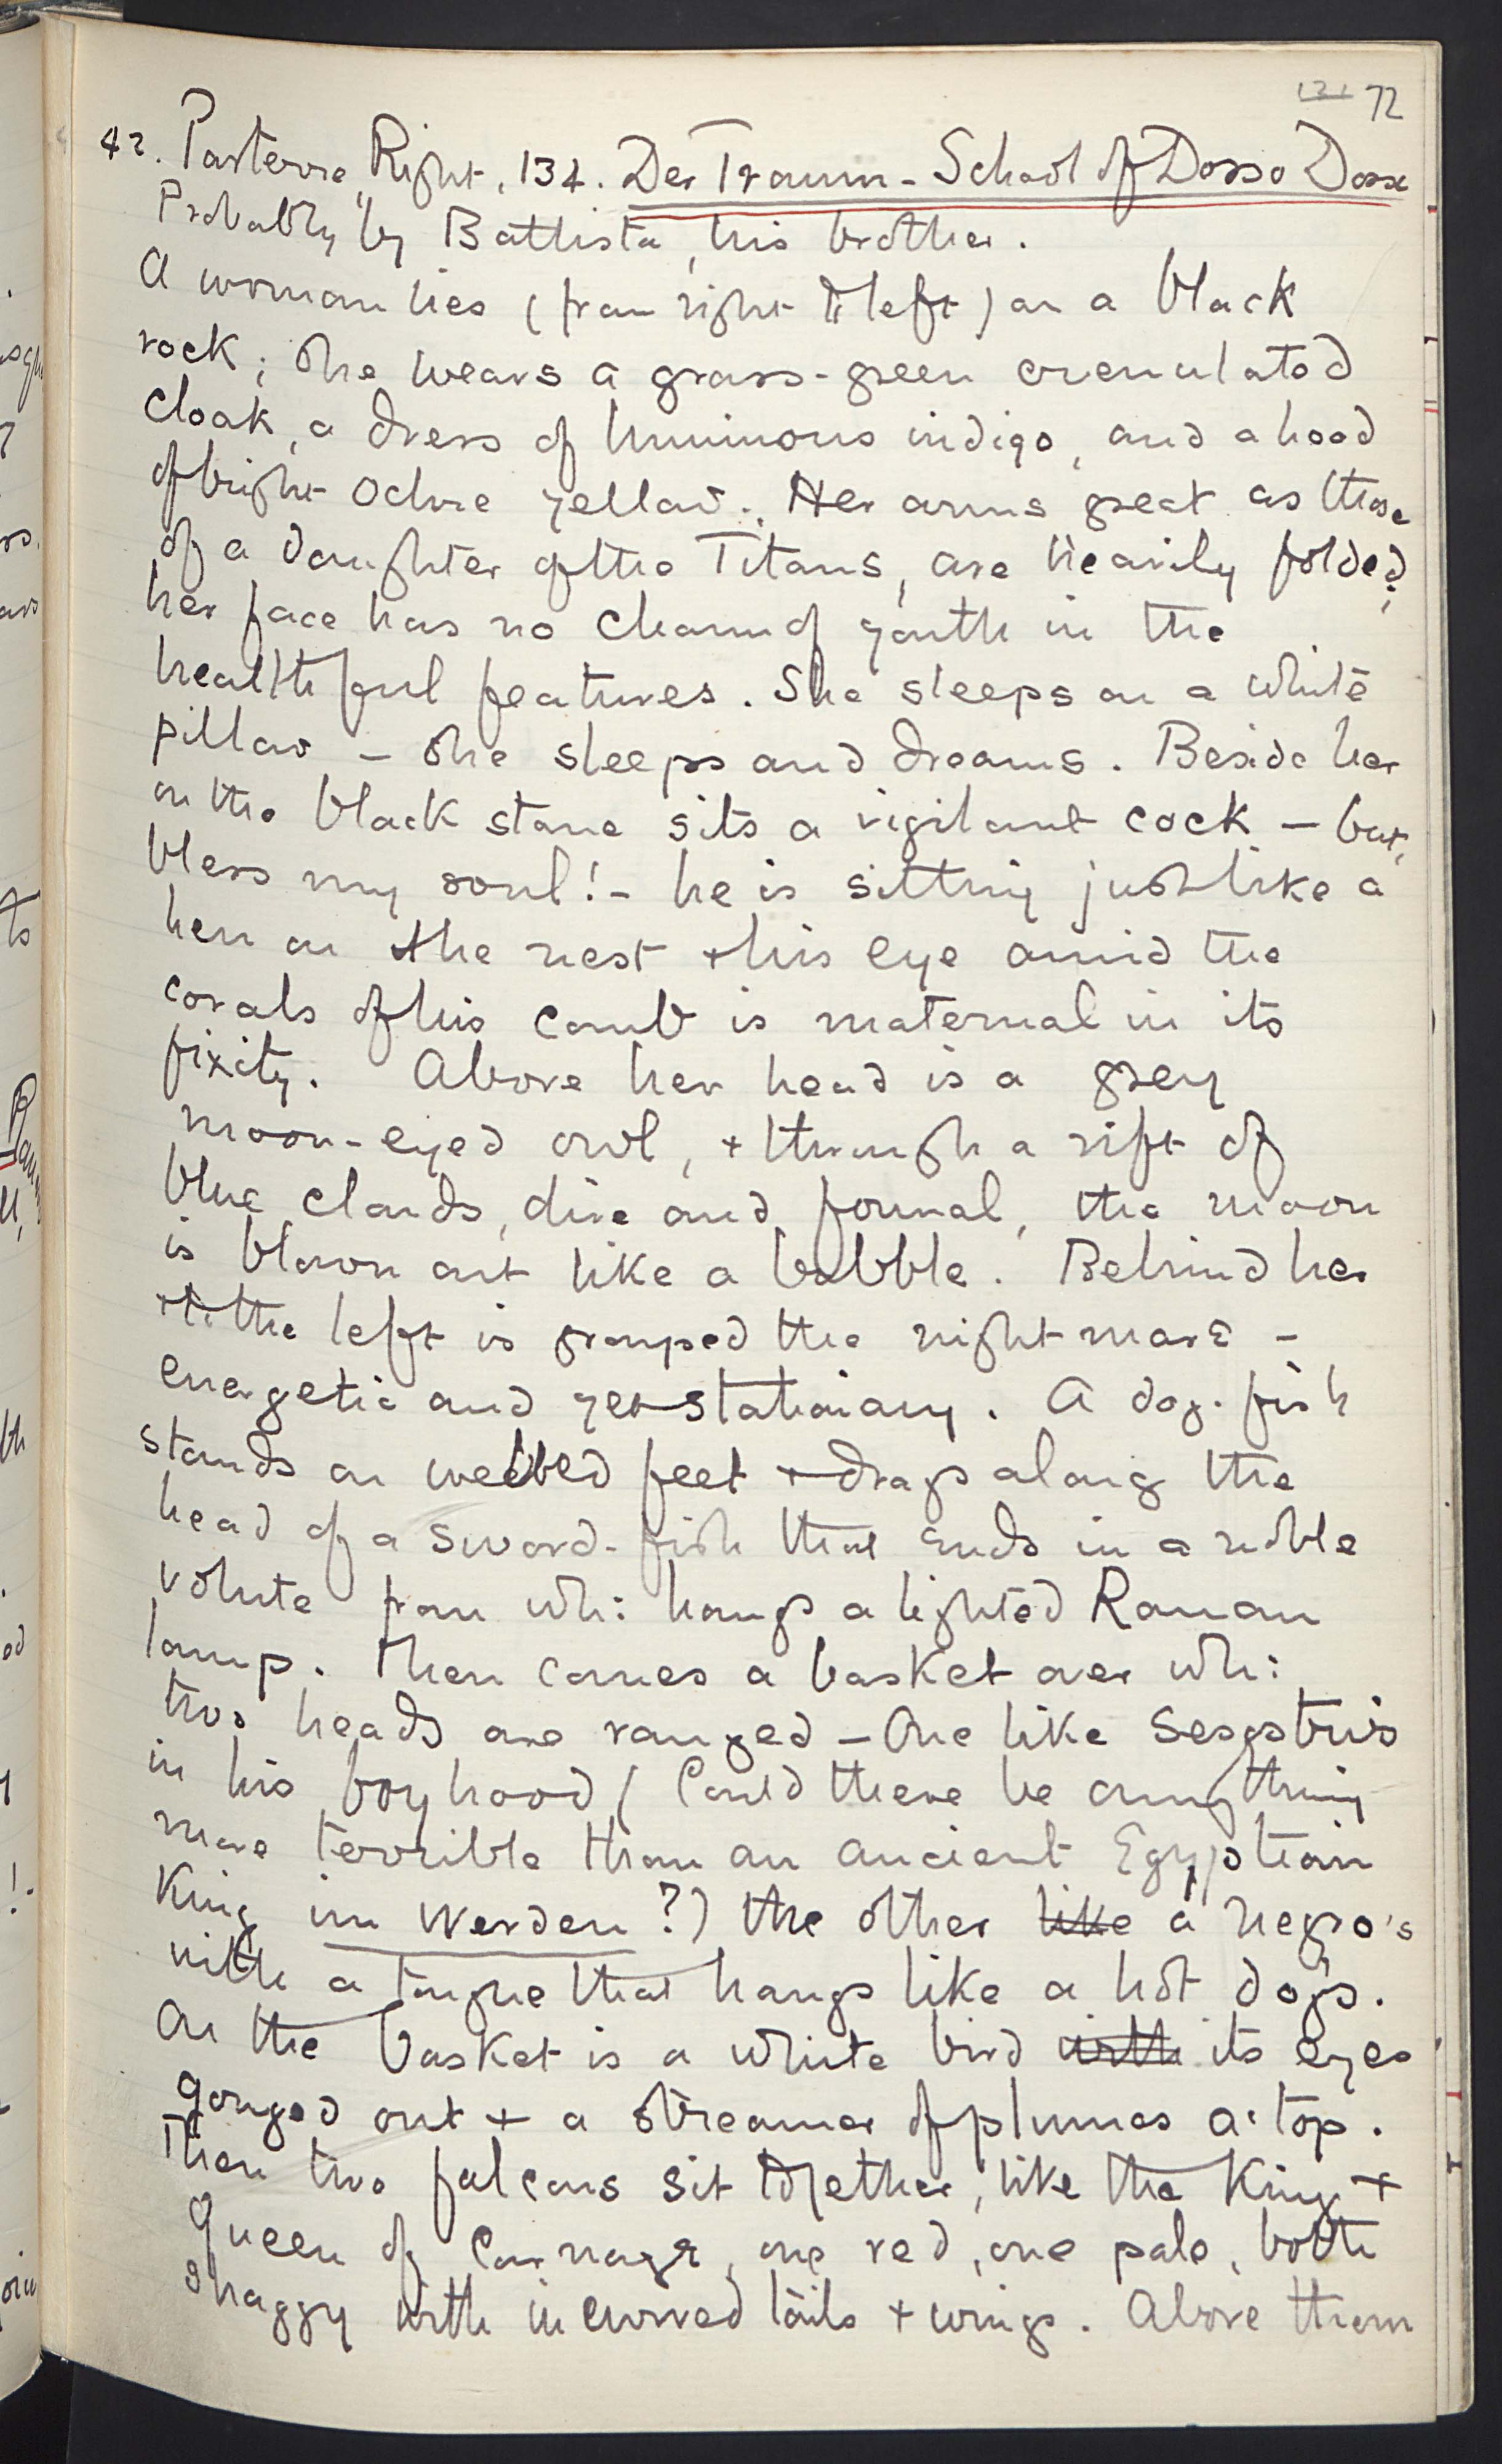 121 72
42. Parterre, Right, 134. Der Traum - School of Dosso Dossi
Probably by Battista, his brother.
A woman lies (from right to left) on a black
rock; she wears a grass-green crenulated
cloak, a dress of luminous indigo, and a hood
of bright ochre yellow. Her arms great as those
of a daughter of the Titans, are heavily folded,
her face has no charm of youth in the
healthful features. She sleeps on a white
pillow - she sleeps and dreams. Beside her
on the black stone sits a vigilant cock - but,
bless my soul! - he is sitting just like a
hen on the nest + his eye amid the
corals of his comb is maternal in its
fixity. Above her head is a grey
moon-eyed owl, + through a rift of
blue clouds, dire and formal, the moon
is blown out like a bubble. Behind her
to the left is grouped the nightmare -
energetic and yet stationary. A dog-fish
stands on webbed feet + drags along the
head of a sword-fish that ends in a noble
volute from wh: hangs a lighted Roman
lamp. Then comes a basket over wh:
two heads are ranged - One like Sesostris
in his boyhood (Could there be anything
more terrible than an ancient Egyptian
King im Werden?) the other like a negro's
with a tongue that hangs like a hot dog's.
On the basket is a white bird with its eyes
gouged out + a streamer of plumes a'top.
Then two falcons sit together, like the King +
Queen of Carnage, one red, one pale, both
shaggy with incurved tails + wings. Above them